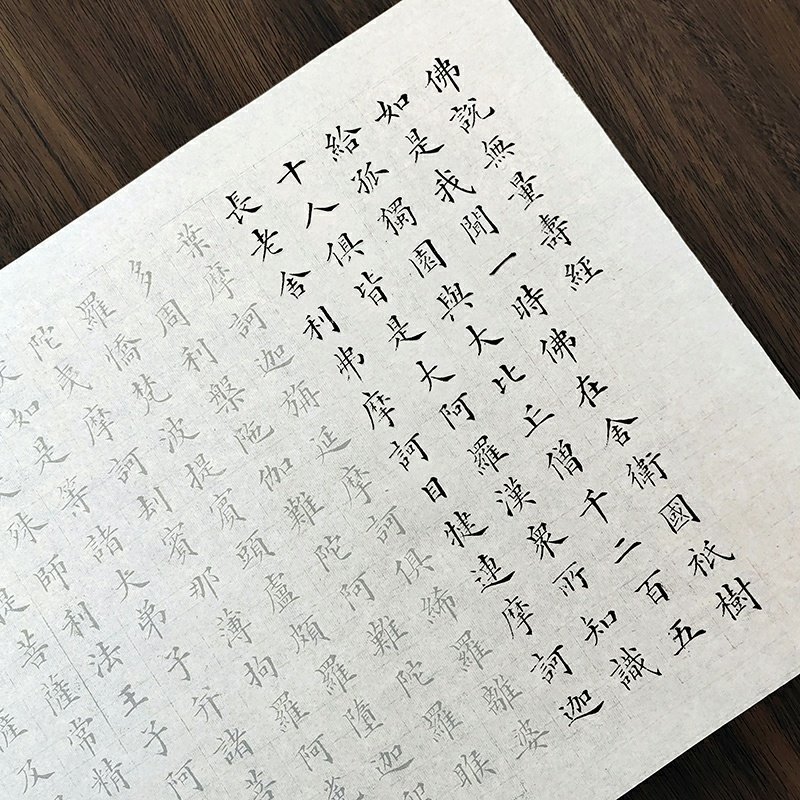 佛說無量壽經
如是我聞一時佛在舍衛國祇樹
給孤獨園與大比丘僧千二百五
十人俱皆是大阿羅漢眾所知識
長老舍利弗摩訶目犍連摩訶迦
葉摩訶迦旃延摩訶俱絺羅離婆
多周利槃陁伽難陀阿難陀羅睺
羅憍梵波提賓頭盧頗羅墮迦留
陀夷摩訶劫賓那薄拘羅阿
如是等諸大弟子弁諸菩
殊師利法王子阿
提菩薩常精
薩及